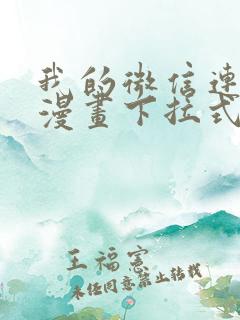 我的微信连
漫画下拉式
王福宪
未经同意禁止转载